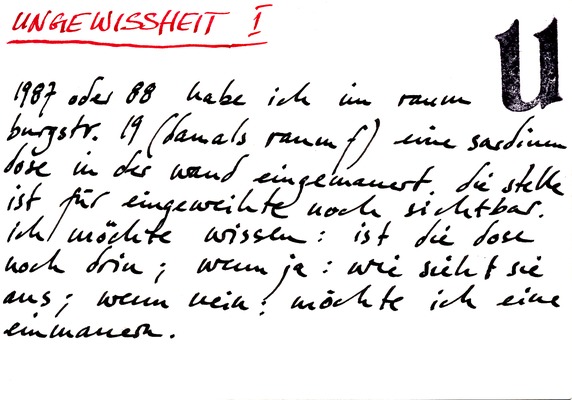 UNGEWISSHEIT I
U
1987 oder 88 habe ich im raum
burgstr. 19 (damals raum f) eine sardinen
dose in der wand eingemauert. die stelle
ist für eingeweihte noch sichtbar.
ich möchte wissen: ist die dose
noch drin; wenn ja: wie sieht sie
aus; wenn nein: möchte ich eine
einmauern.